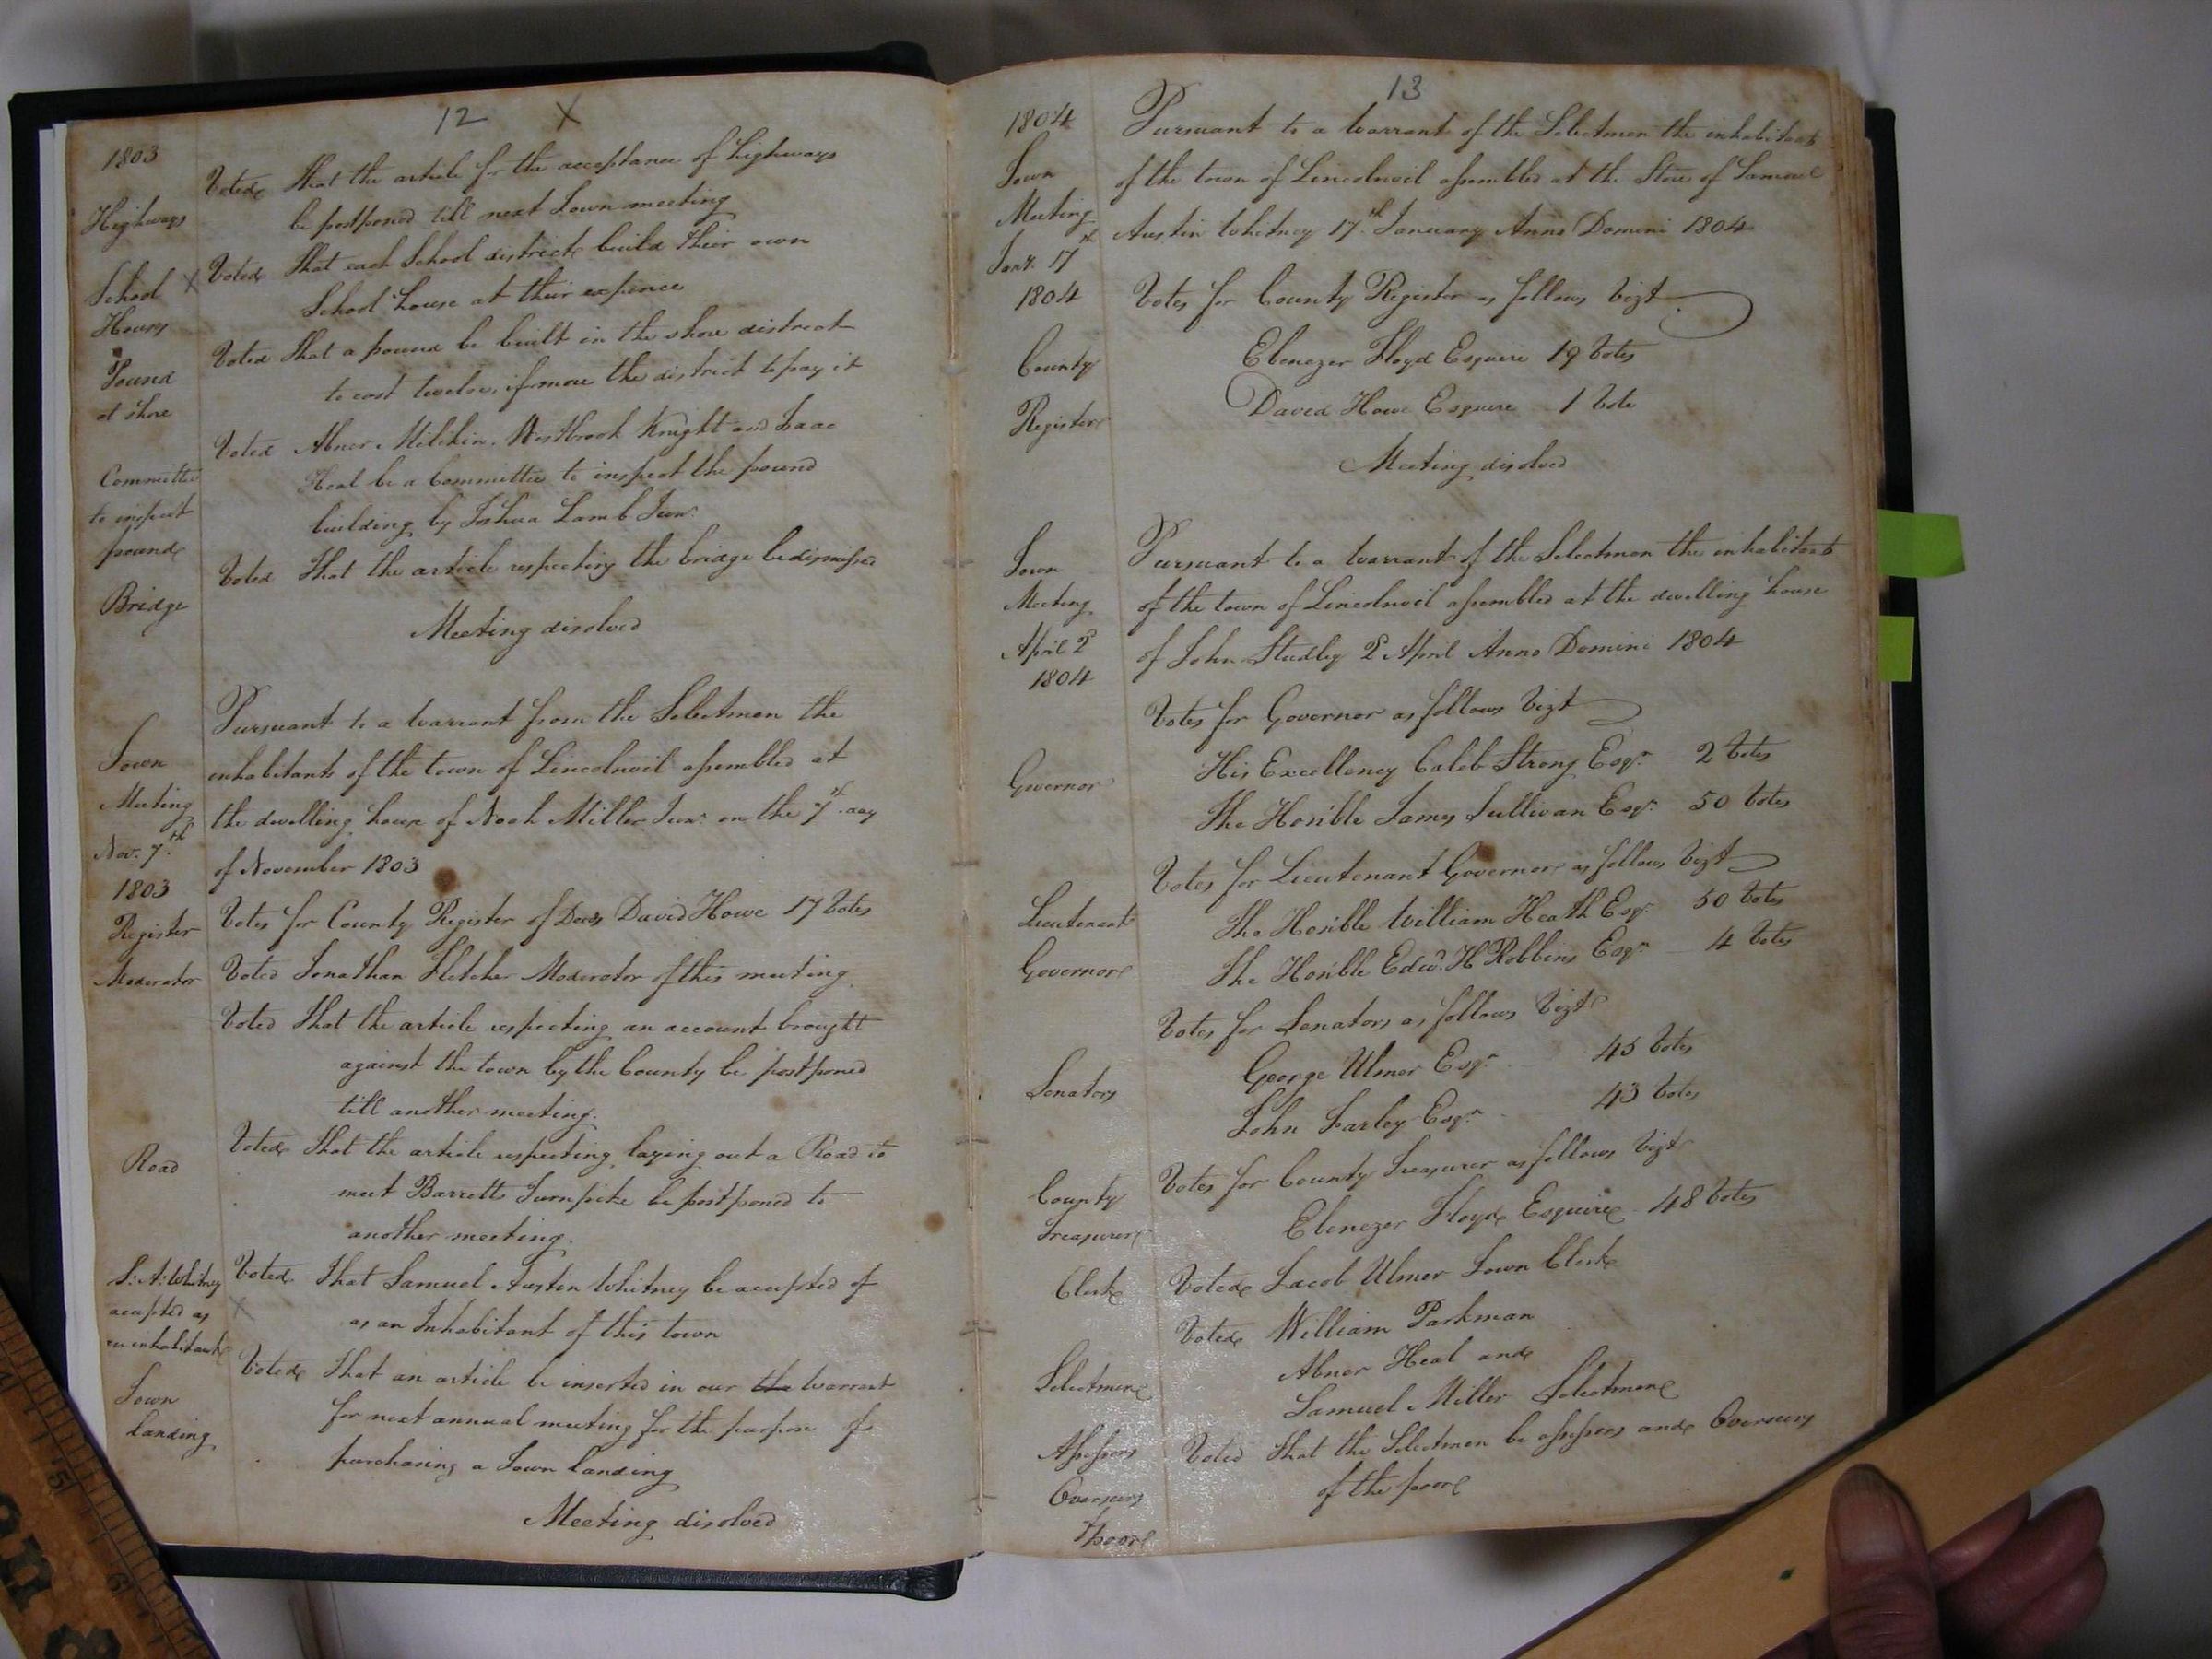 12 X
1803
Highways
Voted That the article for the acceptance of highways
be postponed till next Town meeting
School X
Houses
Voted That each School district build their own
School house at their expence
Pound
at shore
Voted That a pound be built in the shore district
to cost twelve, if more the district to pay it
Committee
to inspect
pound
Voted Abner Milikin, Westbrook Knight and Isaac
Heal be a Committee to inspect the pound
building by Joshua Lamb Junr.
Bridge
Voted That the article respecting the bridge be dismissed
Meeting disolved
Town
Meeting
Nov. 7th
1803
Pursuant to a warrant from the Selectmen the
inhabitants of the town of Lincolnvil assembled at
the dwelling house of Noah Miller Junr. on the 7th day
of November 1803
Register
Votes for County Register of Deeds David Howe 17 Votes
Moderator
Voted Jonathan Fletcher Moderator of this meeting
Voted That the article respecting an account brought
against the town by the County be postponed
till another meeting.
Road
Voted That the article respecting laying out a Road to
meet Barretts Turnpike be postponed to
another meeting.
S: A: Whitney
accepted as
an inhabitant
X
Voted That Samuel Austin Whitney be accepted of
as an Inhabitant of this town
Town
landing
Voted That an article be inserted in our the warrant
for next annual meeting for the purpose of
purchasing a Town landing
Meeting disolved
13
1804
Town
Meeting
Jany. 17th
1804
Pursuant to a warrant of the Selectmen the inhabitants
of the town of Lincolnvil assembled at the Store of Samuel
Austin Whitney 17th January Anno Domini 1804
County
Register
Votes for County Register as follows Vizt
Ebenezer Floyd Esquire 19 Votes
David Howe Esquire 1 Vote
Meeting disolved
Town
Meeting
April 2
1804
Pursuant to a warrant of the Selectmen the inhabitants
of the town of Lincolnvil assembled at the dwelling house
of John Studley 2 April Anno Domini 1804
Governor
Votes for Governor as follows Vizt
His Excellency Caleb Strong Esqr. 2 Votes
The Honible James Sullivan Esqr. 50 Votes
Lieutenant
Governor
Votes for Lieutenant Governor as follows Vizt
The Honible William Heath Esqr. 50 Votes
The Honible Edwd. H Robbins Esqr. 4 Votes
Senators
Votes for Senators as follows Vizt
George Ulmer Esqr. 45 Votes
John Farley Esqr. 43 Votes
County
Treasurer
Votes for County Treasurer as follows Vizt
Ebenezer Floyd Esquire 48 Votes
Clerk
Voted Jacob Ulmer Town Clerk
Selectmen
Voted William Parkman
Abner Heal and
Samuel Miller Selectmen
Assessors
Overseers
poor
Voted That the Selectmen be assessors and Overseers
of the poor
5
6
8